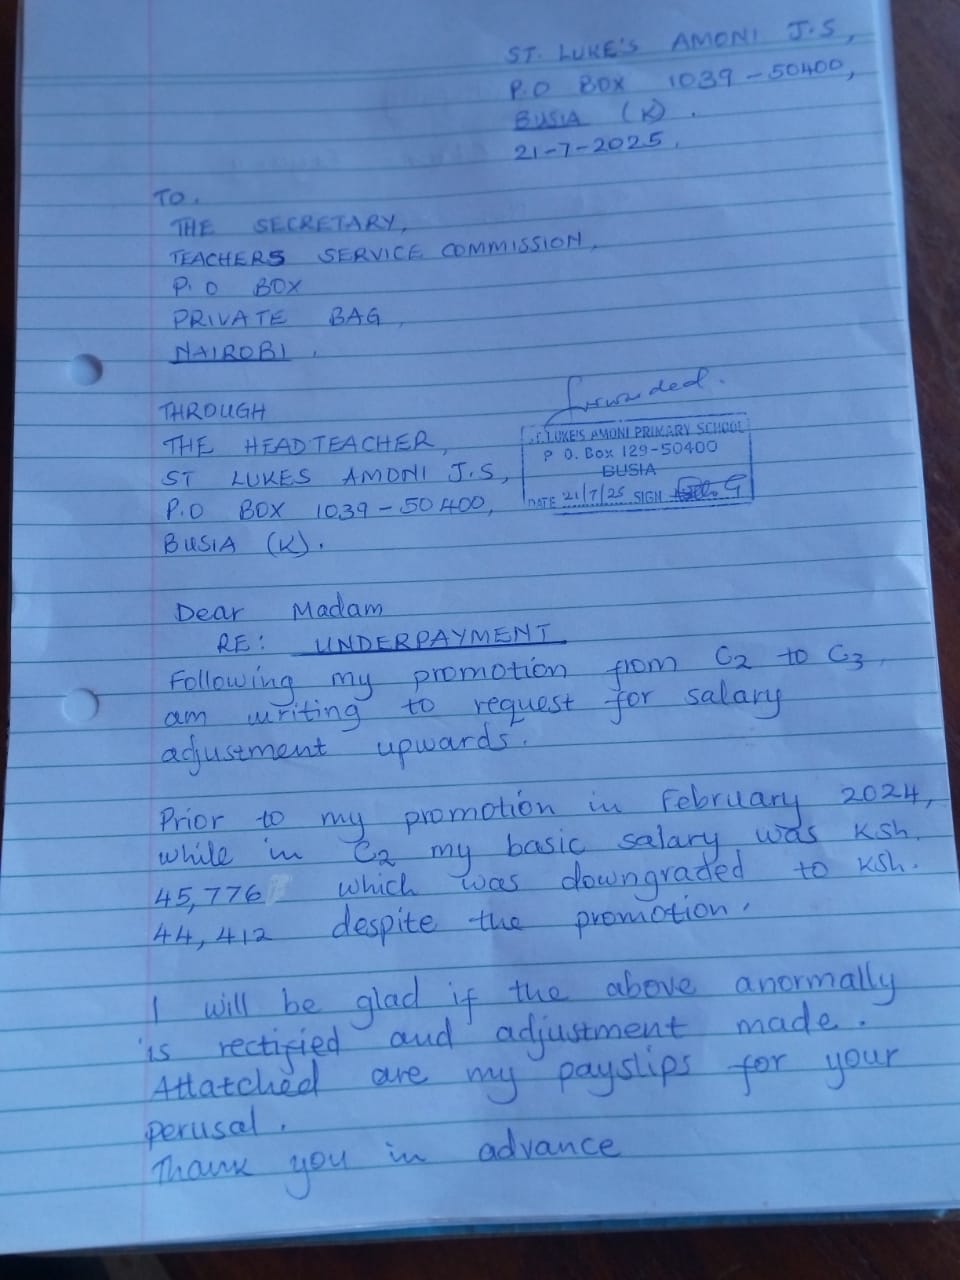 ST. LUKE'S AMONI J.S,
P.O BOX 1039-50400,
BUSIA (K).
21-7-2025.
TO.
THE SECRETARY,
TEACHERS SERVICE COMMISSION,
P.O BOX
PRIVATE BAG,
NAIROBI.
forwarded.
THROUGH
THE HEADTEACHER,
ST LUKES AMONI J.S,
P.O BOX 1039-50400,
BUSIA (K).
ST. LUKE'S AMONI PRIMARY SCHOOL
P O. Box 129-50400
BUSIA
DATE 21/7/25 SIGN
Dear Madam
RE: UNDERPAYMENT
Following my promotion from C2 to C3,
am writing to request for salary
adjustment upwards.
Prior to my promotion in February 2024,
while in C2 my basic salary was Ksh.
45,776 which was downgraded to Ksh.
44,412 despite the promotion.
I will be glad if the above anormally
is rectified and adjustment made.
Attatched are my payslips for your
perusal.
Thank you in advance